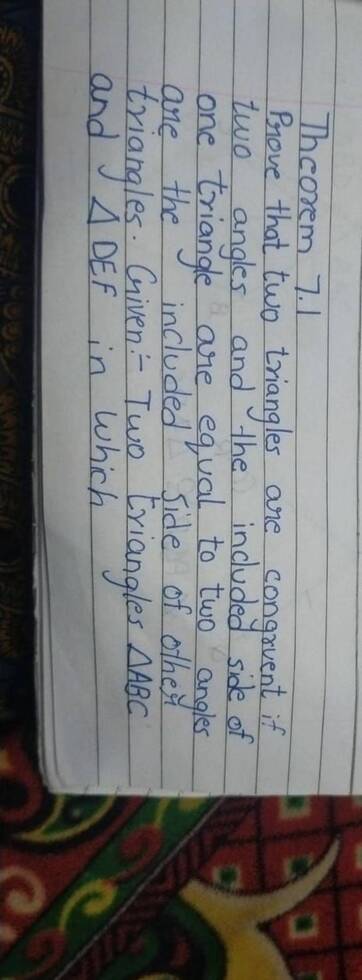 Theorem 7.1
Prove that two triangles are congruent if
two angles and the included side of
one triangle are equal to two angles
are the included side of other
triangles. Given:- Two triangles ΔABC
and Δ DEF in which